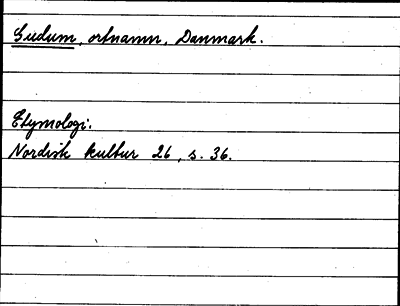 Gudum, ortnamn, Danmark.
Etymologi.
Nordisk kultur 26, s. 36.